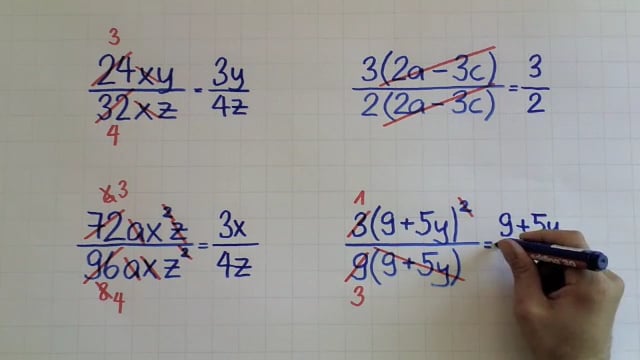 3
24xy/32xz = 3y/4z
4
3(2a-3c)/2(2a-3c) = 3/2
6 3
72ax²z/96axz² = 3x/4z
8 4
1
3(9+5y)²/9(9+5y) = 9+5y
3